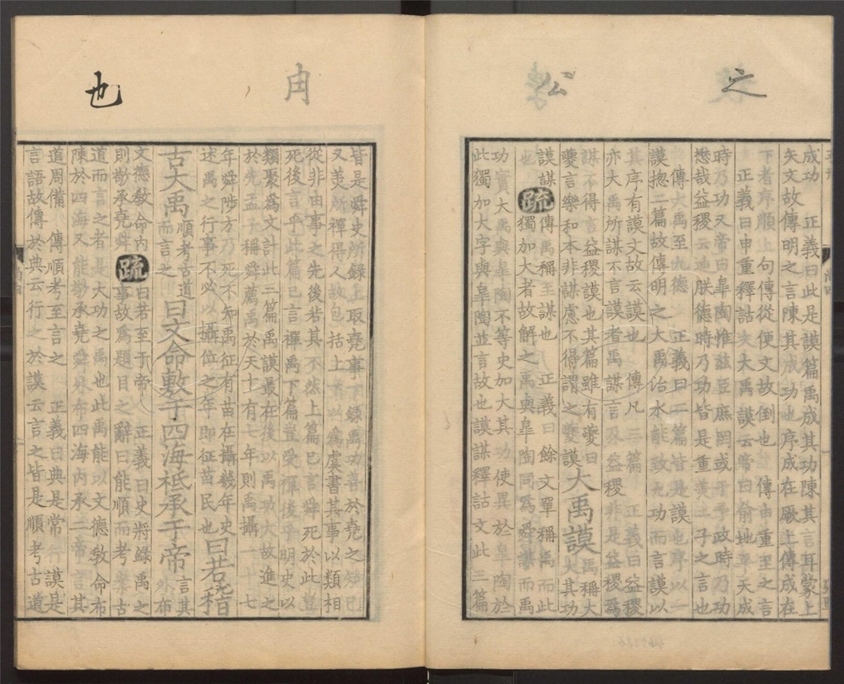 之
公
成功　正義曰此是謨篇禹成其功陳其言耳蒙上
矢文故傳明之言陳其成功也序成在厥上傳成在
下者序順上句傳從便文故倒也　傳申重至之言
正義曰申重釋詁文大禹謨云帝曰俞地平天成
時乃功又帝曰皋陶惟茲臣庶罔或干予政時乃功
懋哉益稷云迪朕德時乃功皆是重美二子之言也
傳大禹至九德　正義曰二篇皆是謨也序以一
謨揔二篇故傳明之大禹治水能致九功而言謨以
其序有謨文故云謨也　傳凡三篇　正義曰益稷
亦大禹所謀不言謨者禹謀言及益稷非是益稷為
謀不得言益稷謨也其篇雖有夔曰
夔言樂和本非謀慮不得謂之夔謨　大禹謨　禹稱大大其功
謨謀也　疏　傳禹稱至謀也　正義曰餘文單稱禹而此
獨加大者故解之禹與皋陶同為舜謀而禹
功實大禹與皋陶不等史加大其功使異於皋陶於
此獨加大字與皋陶並言故也謨謀釋詁文此三篇
冉
也
皆是舜史所錄上取堯事下錄禹功善於堯之知己
又美所禪得人故包括上下以為虞書其事以類相
從非由事之先後若其不然上篇已言舜死於此豈
死後言乎此篇已言禪禹下篇豈受禪後乎明史以
類聚為文計此三篇禹謨最在後以禹功大故進之
於先孟子稱舜薦禹於天十有七年則禹攝一十七
年舜陟方乃死不知禹征有苗在攝幾年史
述禹之行事不必以攝位之年即征苗民也　曰若稽
古大禹　順考古道而言之　曰文命敷于四海祗承于帝　言其外布
文德教命內　疏　曰若至于帝　正義曰史將錄禹之
則敬承堯舜　事故為題目之辭曰能順而考案古
道而言之者是大功之禹也此禹能以文德教命布
陳於四海又能敬承堯舜外布四海內承二帝言其
道周備　傳順考至言之　正義曰典是常行謨是
言語故傳於典云行之於謨云言之皆是順考古道